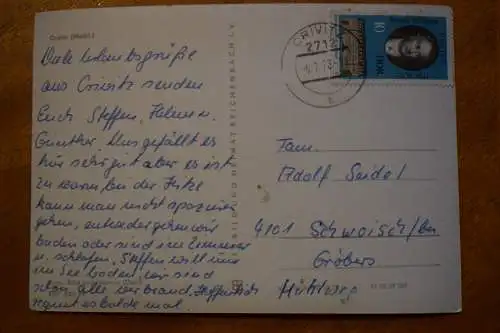 Crivitz (Meckl.)
Viele Urlaubsgrüße
aus Crivitz senden
Euch Steffen, Helma u.
Gunther. Uns gefällt es
hier sehr gut aber es ist
zu warm bei der Hitze
kann man nicht spazieren
gehen, entweder gehen wir
baden oder sind im Zimmer
u. schlafen, Steffen will nur
im See baden, wir sind
schon alle braun.
regnet es bald mal.
BILD UND HEIMAT REICHENBACH I. V.
CRIVITZ
2712
10
DDR
Fam.
Adolf Seidel
4101 Schwoitsch/bei
Gröbers
Mühlweg